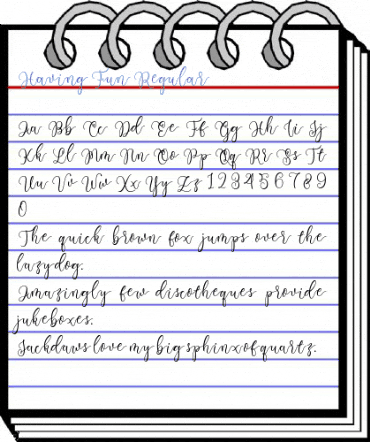 Having Fun Regular
Aa Bb Cc Dd Ee Ff Gg Hh Ii Jj
Kk Ll Mm Nn Oo Pp Qq Rr Ss Tt
Uu Vv Ww Xx Yy Zz 1 2 3 4 5 6 7 8 9
0
The quick brown fox jumps over the
lazy dog.
Amazingly few discotheques provide
jukeboxes.
Jackdaws love my big sphinx of quartz.